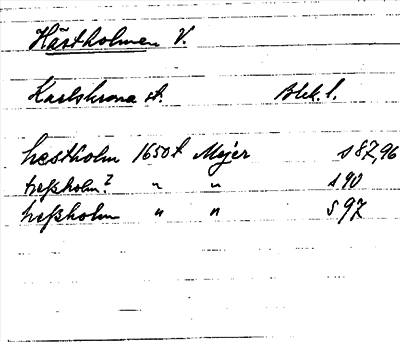 Hästholmen V.
Karlskrona st. Blek. l.
hestholm 1650 t Mejer s 87, 96
heßholm? " " s 90
heßholm " " s 97